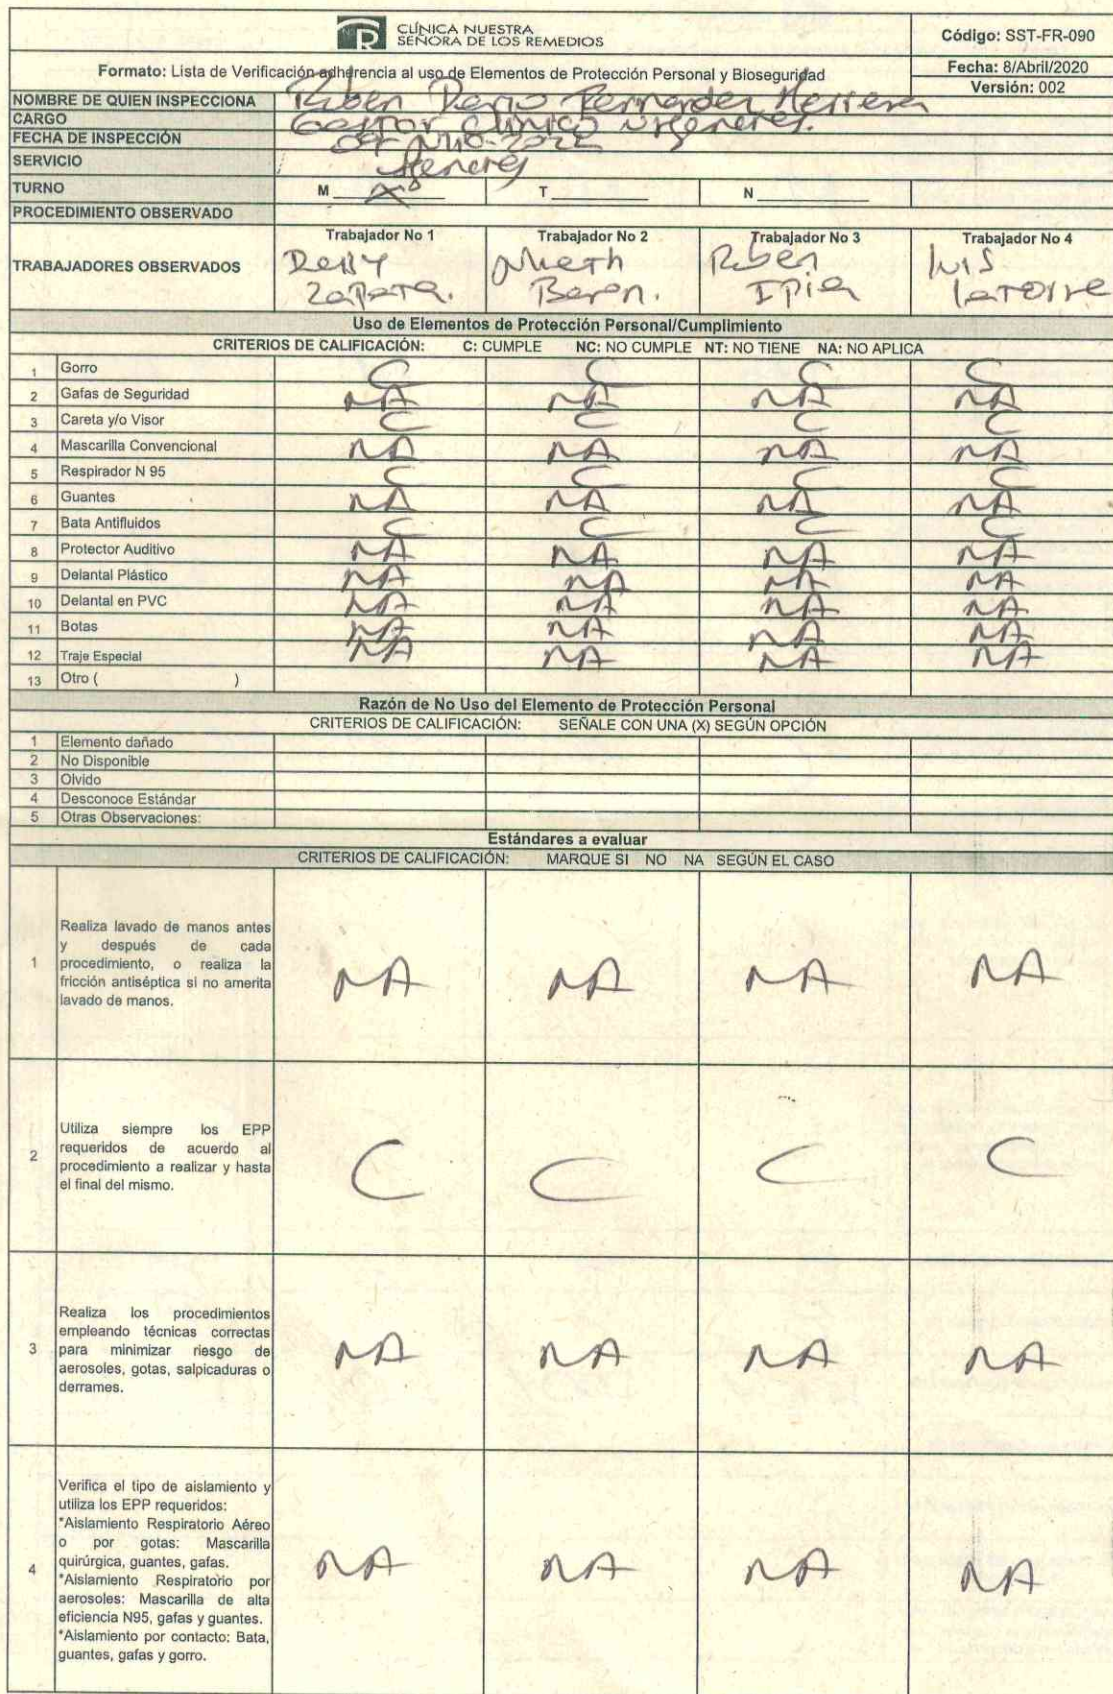 CLÍNICA NUESTRA
SEÑORA DE LOS REMEDIOS
Código: SST-FR-090
Formato: Lista de Verificación adherencia al uso de Elementos de Protección Personal y Bioseguridad
Fecha: 8/Abril/2020
Versión: 002
NOMBRE DE QUIEN INSPECCIONA Ruben Dario Fernandez Herrera
CARGO Gestor Clinico Urgencias.
FECHA DE INSPECCIÓN
SERVICIO
TURNO M X T N
PROCEDIMIENTO OBSERVADO
Trabajador No 1 Trabajador No 2 Trabajador No 3 Trabajador No 4
TRABAJADORES OBSERVADOS
Zapata. Ruben Luis
Ipia Latorre
Uso de Elementos de Protección Personal/Cumplimiento
CRITERIOS DE CALIFICACIÓN: C: CUMPLE NC: NO CUMPLE NT: NO TIENE NA: NO APLICA
1 Gorro C C C C
2 Gafas de Seguridad NA NA NA NA
3 Careta y/o Visor C C C C
4 Mascarilla Convencional NA NA NA NA
5 Respirador N 95 C C C C
6 Guantes NA NA NA NA
7 Bata Antifluidos C C C C
8 Protector Auditivo NA NA NA NA
9 Delantal Plástico NA NA NA NA
10 Delantal en PVC NA NA NA NA
11 Botas NA NA NA NA
12 Traje Especial NA NA NA NA
13 Otro ( )
Razón de No Uso del Elemento de Protección Personal
CRITERIOS DE CALIFICACIÓN: SEÑALE CON UNA (X) SEGÚN OPCIÓN
1 Elemento dañado
2 No Disponible
3 Olvido
4 Desconoce Estándar
5 Otras Observaciones:
Estándares a evaluar
CRITERIOS DE CALIFICACIÓN: MARQUE SI NO NA SEGÚN EL CASO
Realiza lavado de manos antes
y después de cada
1 procedimiento, o realiza la
fricción antiséptica si no amerita
lavado de manos.
NA NA NA NA
Utiliza siempre los EPP
requeridos de acuerdo al
2 procedimiento a realizar y hasta
el final del mismo.
C C C C
Realiza los procedimientos
empleando técnicas correctas
3 para minimizar riesgo de
aerosoles, gotas, salpicaduras o
derrames.
NA NA NA NA
Verifica el tipo de aislamiento y
utiliza los EPP requeridos:
*Aislamiento Respiratorio Aéreo
o por gotas: Mascarilla
quirúrgica, guantes, gafas.
4 *Aislamiento Respiratorio por
aerosoles: Mascarilla de alta
eficiencia N95, gafas y guantes.
*Aislamiento por contacto: Bata,
guantes, gafas y gorro.
NA NA NA NA